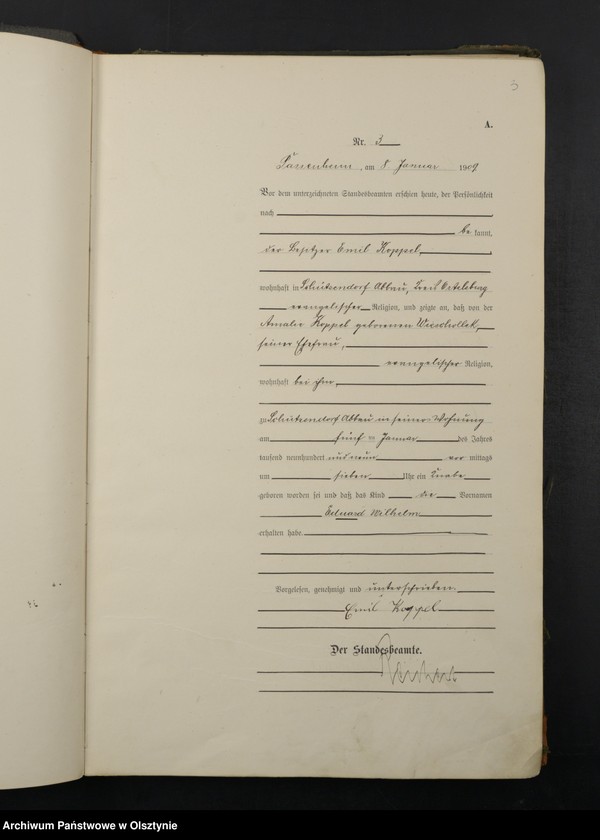 3
A.
Nr. 3
am 8 Januar 1909
Vor dem unterzeichneten Standesbeamten erschien heute, der Persönlichkeit
nach
be kannt,
der Besitzer Emil Koppel
wohnhaft in Schützendorf Abbau, Kreis Ortelsburg
evangelischer Religion, und zeigte an, daß von der
Amalie Koppel geborenen Wieschollek,
seiner Ehefrau,
evangelischer Religion,
wohnhaft bei ihm
zu Schützendorf Abbau in seiner Wohnung
am fünf ten Januar des Jahres
tausend neunhundert und neun vor mittags
um sieben Uhr ein Knabe
geboren worden sei und daß das Kind die Vornamen
Eduard Wilhelm
erhalten habe.
Vorgelesen, genehmigt und unterschrieben
Emil Koppel
Der Standesbeamte.
Archiwum Państwowe w Olsztynie